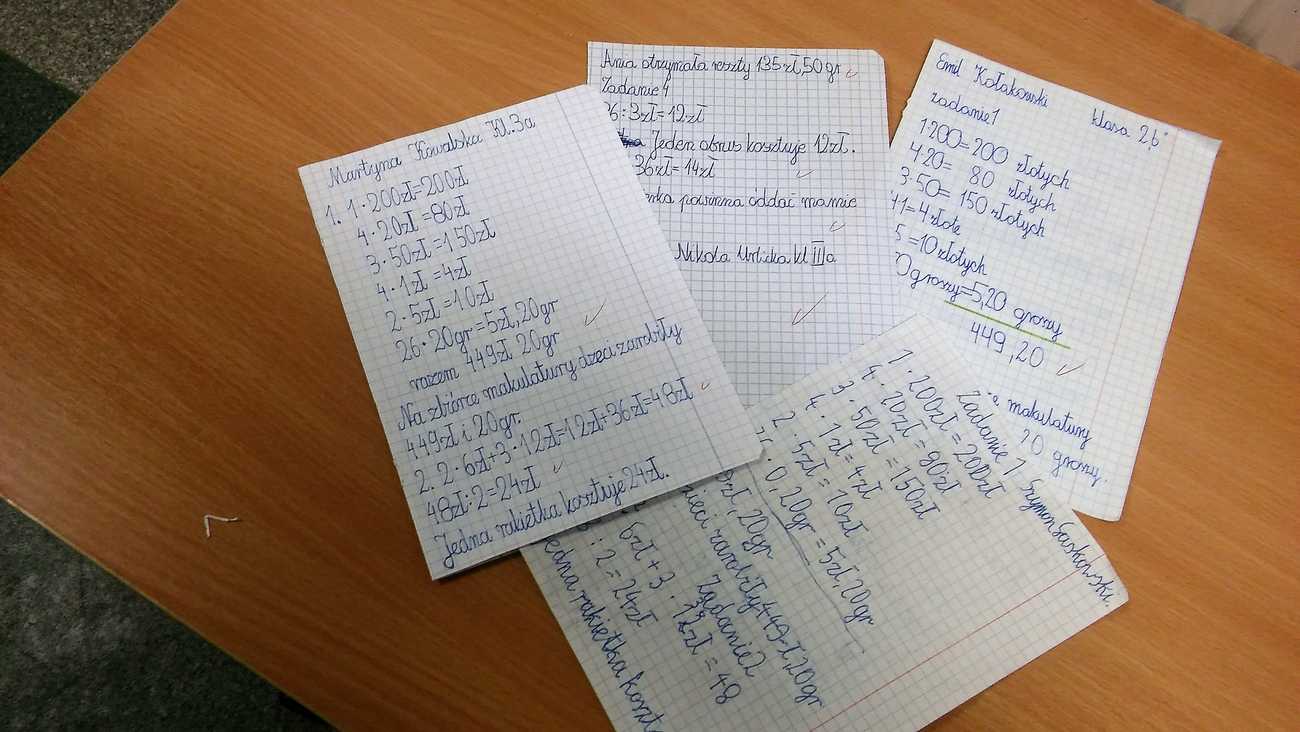 Martyna Kowalska Kl.3a
1. 1·200zł=200zł
4·20zł=80zł
3·50zł=150zł
4·1zł=4zł
2·5zł=10zł
26·20gr=5zł,20gr
razem 449zł 20gr
Na zbiórce makulatury dzieci zarobiły
449zł i 20gr.
2. 2·6zł+3·12zł=12zł+36zł=48zł
48zł:2=24zł
Jedna rakietka kosztuje 24zł.
Ania otrzymała reszty 135zł,50gr
Zadanie 4
36:3zł=12zł
Jeden obrus kosztuje 12zł.
36zł=14zł
powinna oddać mamie
Nikola kl IIIa
Emil Kołakowski klasa 2b
zadanie 1
1·200=200 złotych
4·20= 80 złotych
3·50= 150 złotych
4·1=4 złote
5=10 złotych
0groszy=5,20 groszy
449,20
makulatury
20 groszy.
Szymon Saskowski.
Zadanie 1
1·200zł=200zł
4·20zł=80zł
3·50zł=150zł
4·1zł=4zł
2·5zł=10zł
26·0,20gr=5zł,20gr
zł,20gr
dzieci zarobiły 449zł,20gr
Zadanie 2
6zł+3·12zł=48
:2=24zł
Jedna rakietka koszt